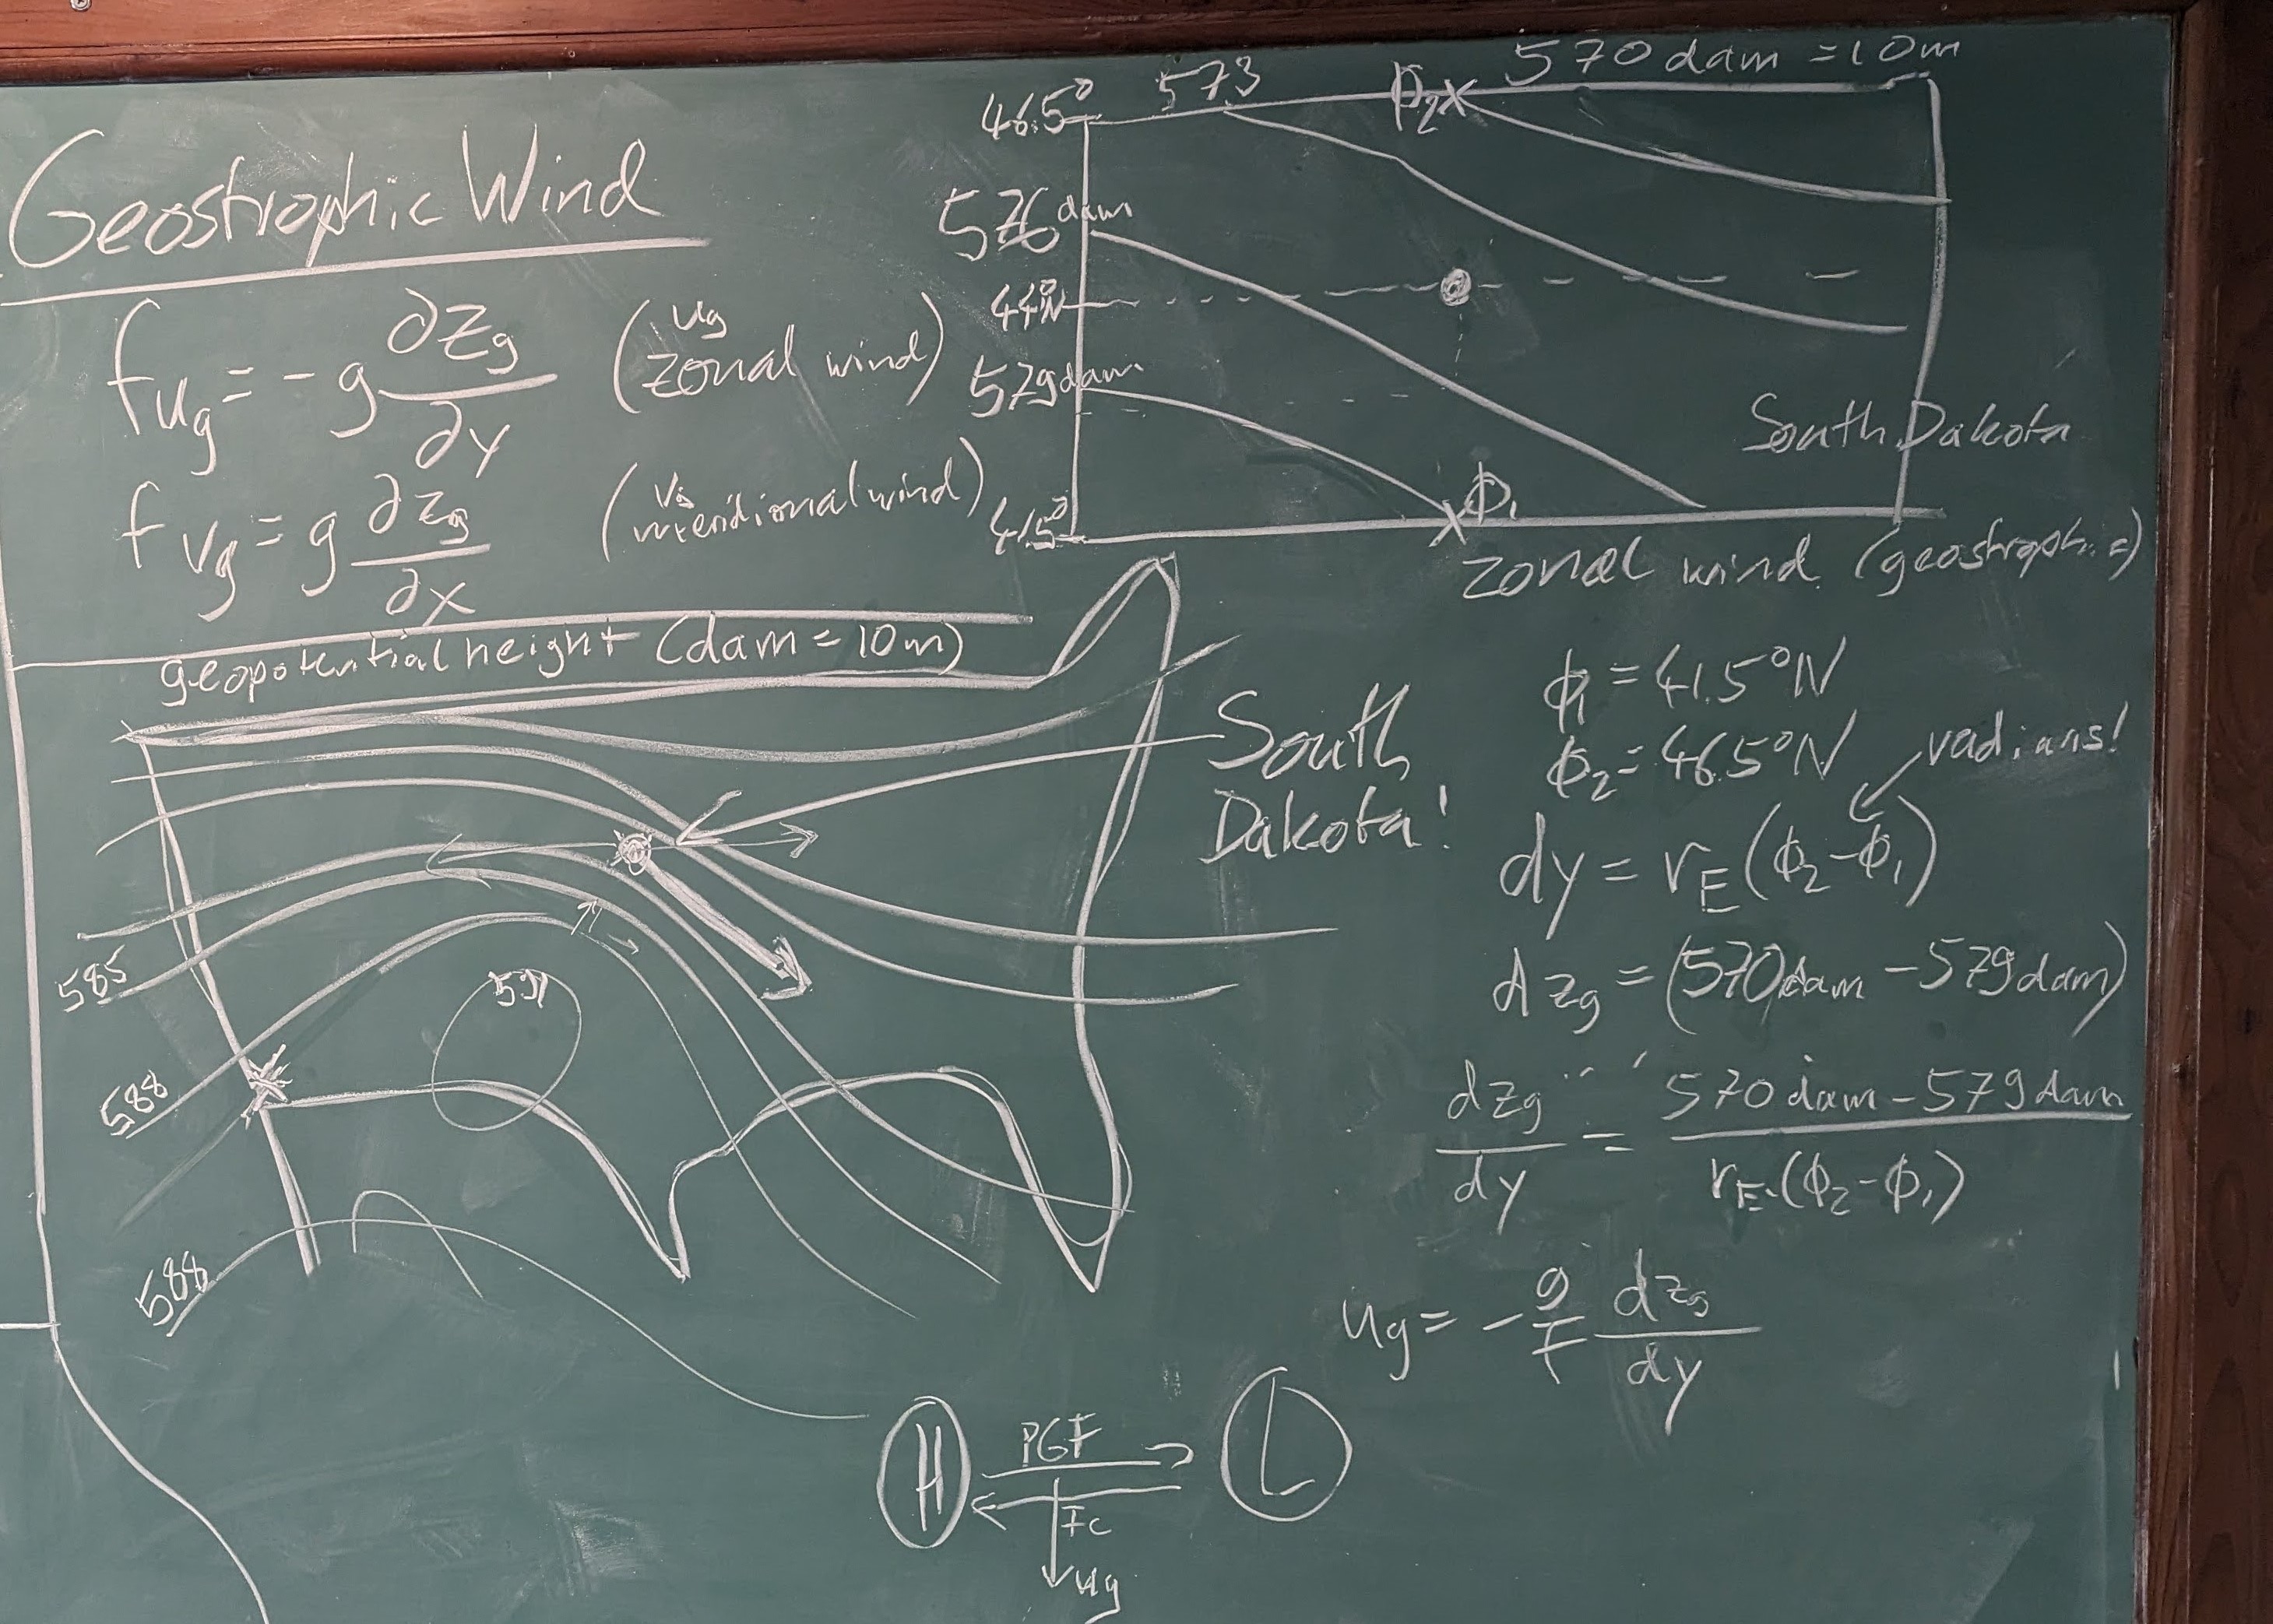 Geostrophic Wind
fug = - g ∂Zg / ∂y (ug zonal wind)
f vg = g ∂zg / ∂x (vg meridional wind)
geopotential height (dam = 10m)
585
588
591
588
South
Dakota!
46.5°
573
ϕ2 X
570 dam = 10m
576 dam
44°N
579 dam
South Dakota
41.5°
X ϕ1
zonal wind (geostrophic)
ϕ1 = 41.5°N
ϕ2 = 46.5°N
radians!
dy = rE (ϕ2 - ϕ1)
dzg = (570dam - 579dam)
dzg / dy = 570 dam - 579 dam / rE (ϕ2 - ϕ1)
ug = - g/f dzg / dy
H PGF L
Fc
ug